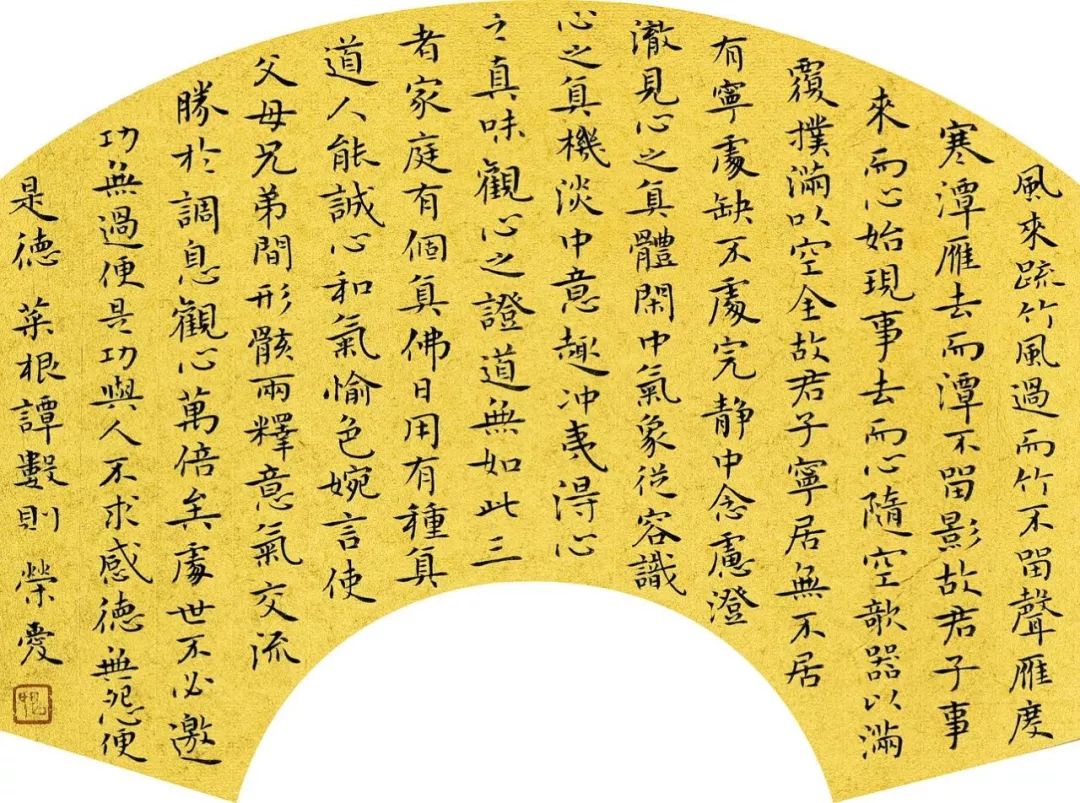 風來疏竹風過而竹不留聲雁度
寒潭雁去而潭不留影故君子事
來而心始現事去而心隨空欹器以滿
覆撲滿以空全故君子寧居無不居
有寧處缺不處完静中念慮澄
澈見心之真體閑中氣象從容識
心之真機淡中意趣冲夷得心
之真味觀心之證道無如此三
者家庭有個真佛日用有種真
道人能誠心和氣愉色婉言使
父母兄弟間形骸兩釋意氣交流
勝於調息觀心萬倍矣處世不必邀
功無過便是功與人不求感德無怨便
是德 菜根譚數則 榮愛